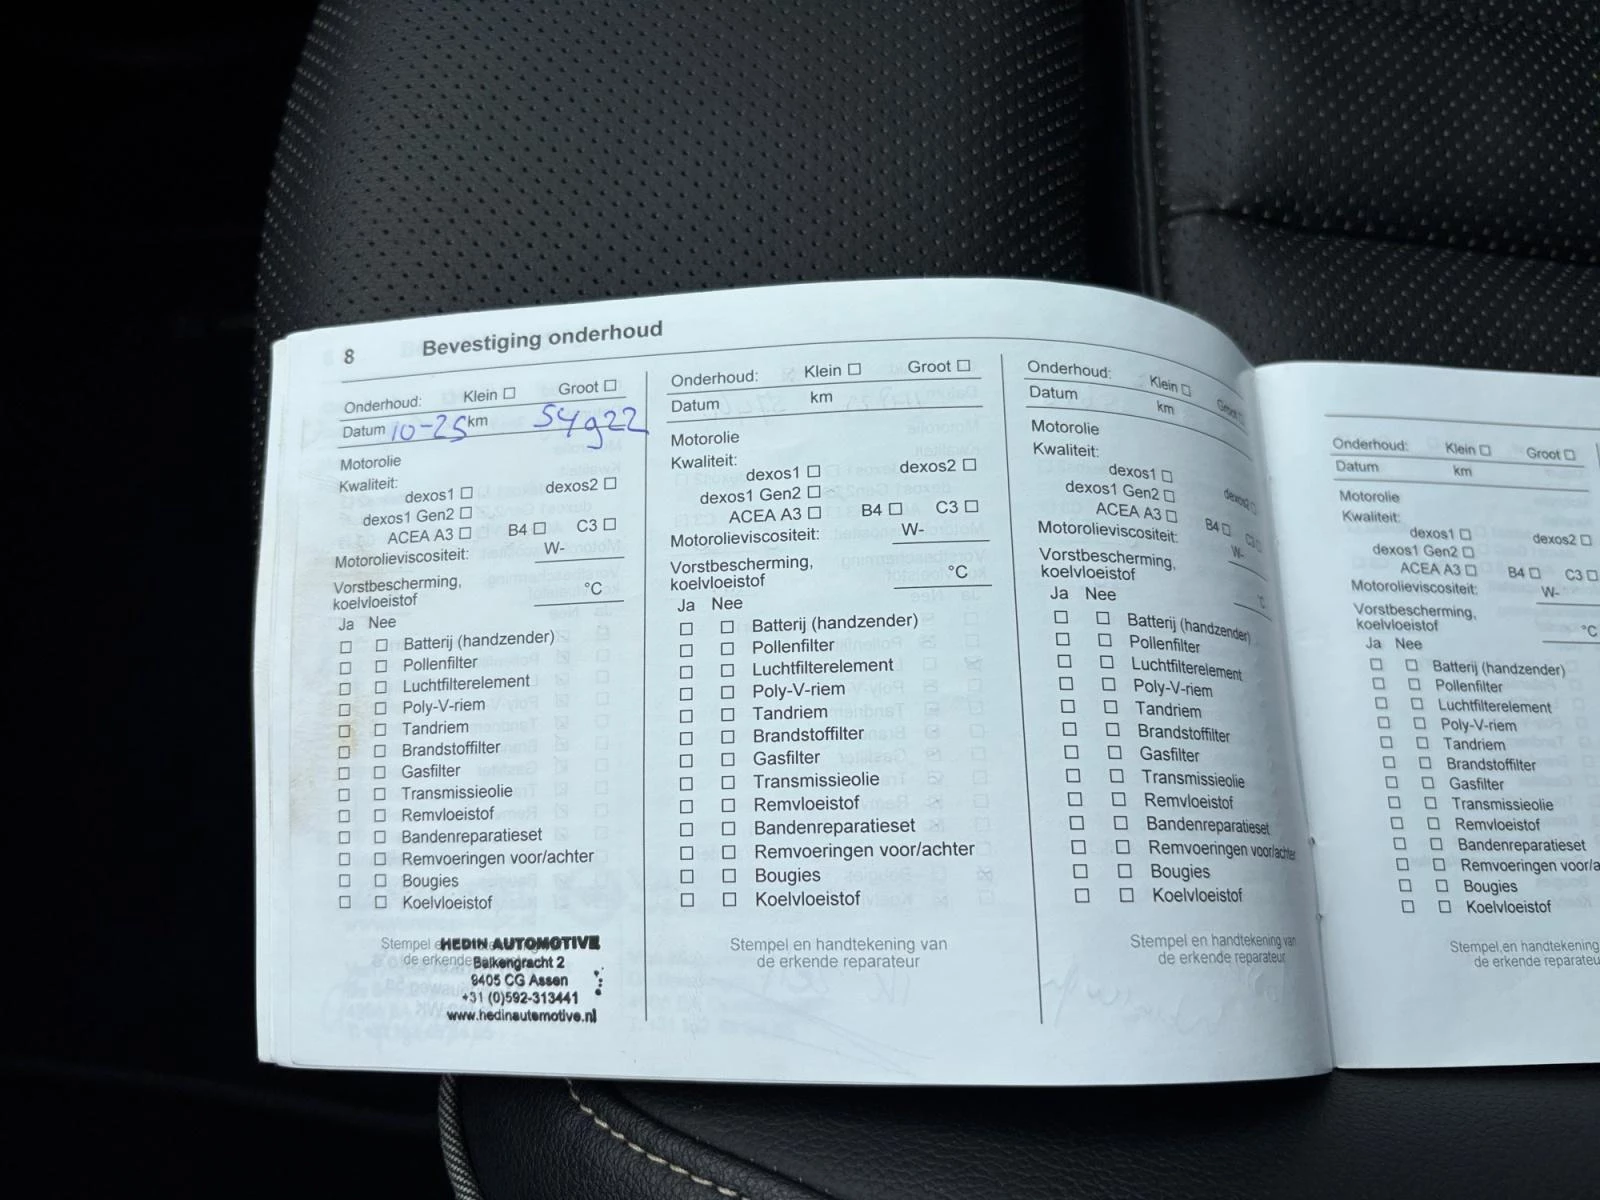 8 Bevestiging onderhoud
Onderhoud: Klein ☐ Groot ☐
Datum 10-25 km 54922
Motorolie
Kwaliteit:
dexos1 ☐ dexos2 ☐
dexos1 Gen2 ☐
ACEA A3 ☐ B4 ☐ C3 ☐
Motorolieviscositeit: W-
Vorstbescherming,
koelvloeistof °C
Ja Nee
☐ ☐ Batterij (handzender)
☐ ☐ Pollenfilter
☐ ☐ Luchtfilterelement
☐ ☐ Poly-V-riem
☐ ☐ Tandriem
☐ ☐ Brandstoffilter
☐ ☐ Gasfilter
☐ ☐ Transmissieolie
☐ ☐ Remvloeistof
☐ ☐ Bandenreparatieset
☐ ☐ Remvoeringen voor/achter
☐ ☐ Bougies
☐ ☐ Koelvloeistof
Stempel
de erkende
HEDIN AUTOMOTIVE
Balkengracht 2
9405 CG Assen
+31 (0)592-313441
www.hedinautomotive.nl
Onderhoud: Klein ☐ Groot ☐
Datum km
Motorolie
Kwaliteit:
dexos1 ☐ dexos2 ☐
dexos1 Gen2 ☐
ACEA A3 ☐ B4 ☐ C3 ☐
Motorolieviscositeit: W-
Vorstbescherming,
koelvloeistof °C
Ja Nee
☐ ☐ Batterij (handzender)
☐ ☐ Pollenfilter
☐ ☐ Luchtfilterelement
☐ ☐ Poly-V-riem
☐ ☐ Tandriem
☐ ☐ Brandstoffilter
☐ ☐ Gasfilter
☐ ☐ Transmissieolie
☐ ☐ Remvloeistof
☐ ☐ Bandenreparatieset
☐ ☐ Remvoeringen voor/achter
☐ ☐ Bougies
☐ ☐ Koelvloeistof
Stempel en handtekening van
de erkende reparateur
Onderhoud: Klein ☐ Groot ☐
Datum km
Motorolie
Kwaliteit:
dexos1 ☐ dexos2 ☐
dexos1 Gen2 ☐
ACEA A3 ☐ B4 ☐ C3 ☐
Motorolieviscositeit: W-
Vorstbescherming,
koelvloeistof °C
Ja Nee
☐ ☐ Batterij (handzender)
☐ ☐ Pollenfilter
☐ ☐ Luchtfilterelement
☐ ☐ Poly-V-riem
☐ ☐ Tandriem
☐ ☐ Brandstoffilter
☐ ☐ Gasfilter
☐ ☐ Transmissieolie
☐ ☐ Remvloeistof
☐ ☐ Bandenreparatieset
☐ ☐ Remvoeringen voor/achter
☐ ☐ Bougies
☐ ☐ Koelvloeistof
Stempel en handtekening van
de erkende reparateur
Onderhoud: Klein ☐ Groot ☐
Datum km
Motorolie
Kwaliteit:
dexos1 ☐ dexos2 ☐
dexos1 Gen2 ☐
ACEA A3 ☐ B4 ☐ C3 ☐
Motorolieviscositeit: W-
Vorstbescherming,
koelvloeistof °C
Ja Nee
☐ ☐ Batterij (handzender)
☐ ☐ Pollenfilter
☐ ☐ Luchtfilterelement
☐ ☐ Poly-V-riem
☐ ☐ Tandriem
☐ ☐ Brandstoffilter
☐ ☐ Gasfilter
☐ ☐ Transmissieolie
☐ ☐ Remvloeistof
☐ ☐ Bandenreparatieset
☐ ☐ Remvoeringen voor/a
☐ ☐ Bougies
☐ ☐ Koelvloeistof
Stempel en handtekening
de erkende reparateu